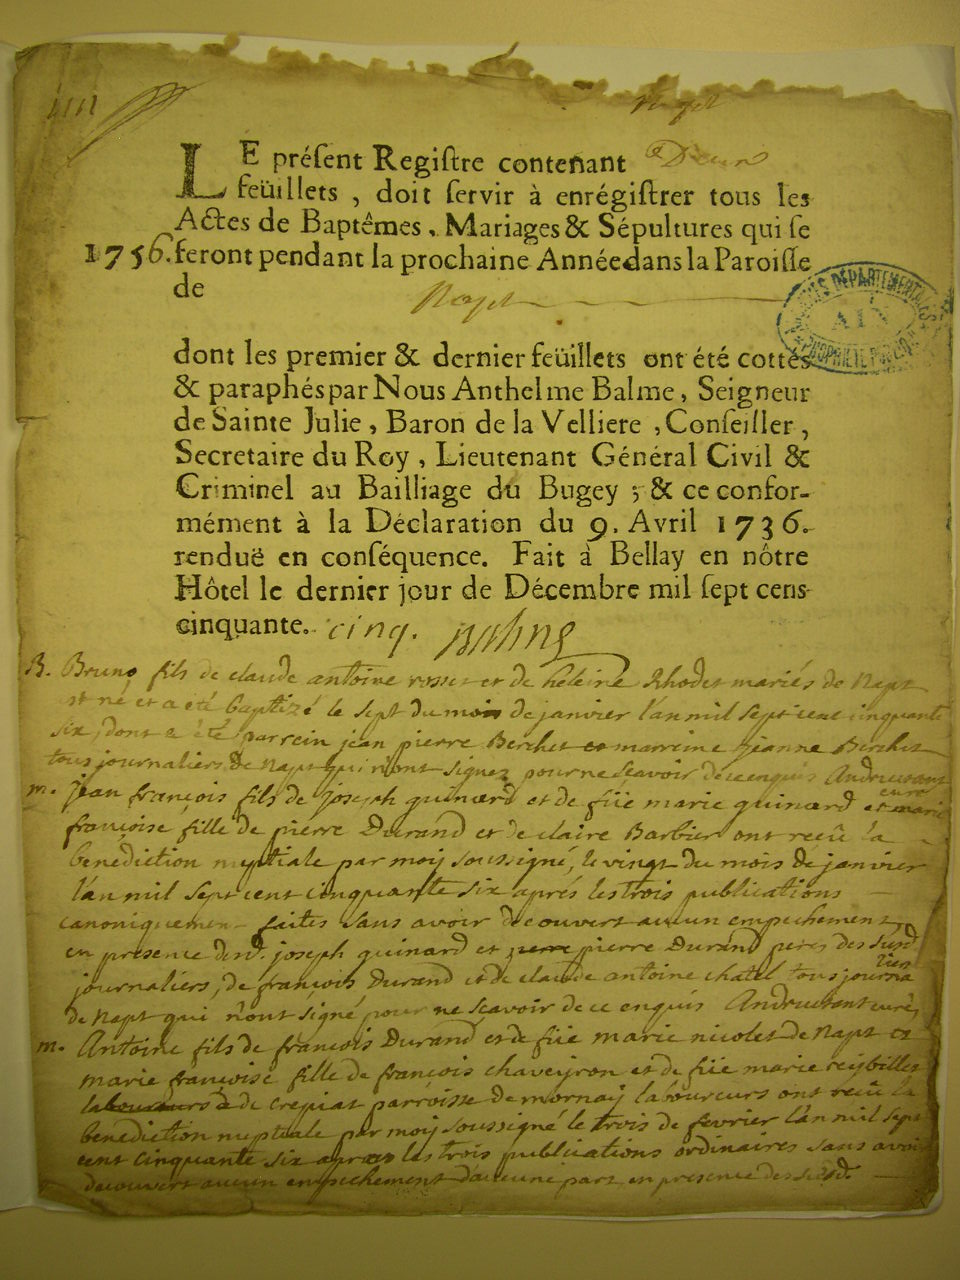 LE préſent Regiſtre contenant Deux
feüillets, doit ſervir à enrégiſtrer tous les
Actes de Baptêmes, Mariages & Sépultures qui ſe
1756. feront pendant la prochaine Année dans la Paroiſſe
de Napt
ARCHIVES DÉPARTEMENTALES
AIN
dont les premier & dernier feüillets ont été cottés
& paraphés par Nous Anthelme Balme, Seigneur
de Sainte Julie, Baron de la Velliere, Conſeiller,
Secretaire du Roy, Lieutenant Général Civil &
Criminel au Bailliage du Bugey; & ce confor-
mément à la Déclaration du 9. Avril 1736.
renduë en conſéquence. Fait à Bellay en nôtre
Hôtel le dernier jour de Décembre mil ſept cens
cinquante. cinq. Balme
B. Bruno fils de claude antoine rosset et de heleine Rhodet mariés de Napt
est né et a été baptizé le sept du mois de janvier l'an mil sept cent cinquante
six, dont a été parrein jean pierre Berchet et marreine jeanne Berchet
tous journaliers de Napt qui n'ont signez pour ne scavoir de ce enquis Andruetant
curé
m. jean françois fils de joseph guinard et de füe marie guinard et marie
françoise fille de pierre Durand et de claire Barbier ont reçû la
benediction nuptiale par moy soussigné, le vingt du mois de janvier
l'an mil sept cent cinquante six aprés les trois publications
canoniquement faites sans avoir découvert aucun empechement
en presence de joseph guinard et pierre Durand peres des susd.
journaliers, de françois Durand et de claude antoine chatel tous journaliers
de Napt qui n'ont signé pour ne scavoir de ce enquis Andruetant curé
m. Antoine fils de françois Durand et de füe marie nicolet de Napt et
marie françoise fille de françois chaveyron et de füe marie reybillet
laboureurs de crepiat parroisse de mornay laboureurs ont reçû la
benediction nuptiale par moy soussigné le trois de fevrier l'an mil sept
cent cinquante six apres les trois publications ordinaires sans avoir
découvert aucun empechement d'aucune part en presence des susd.